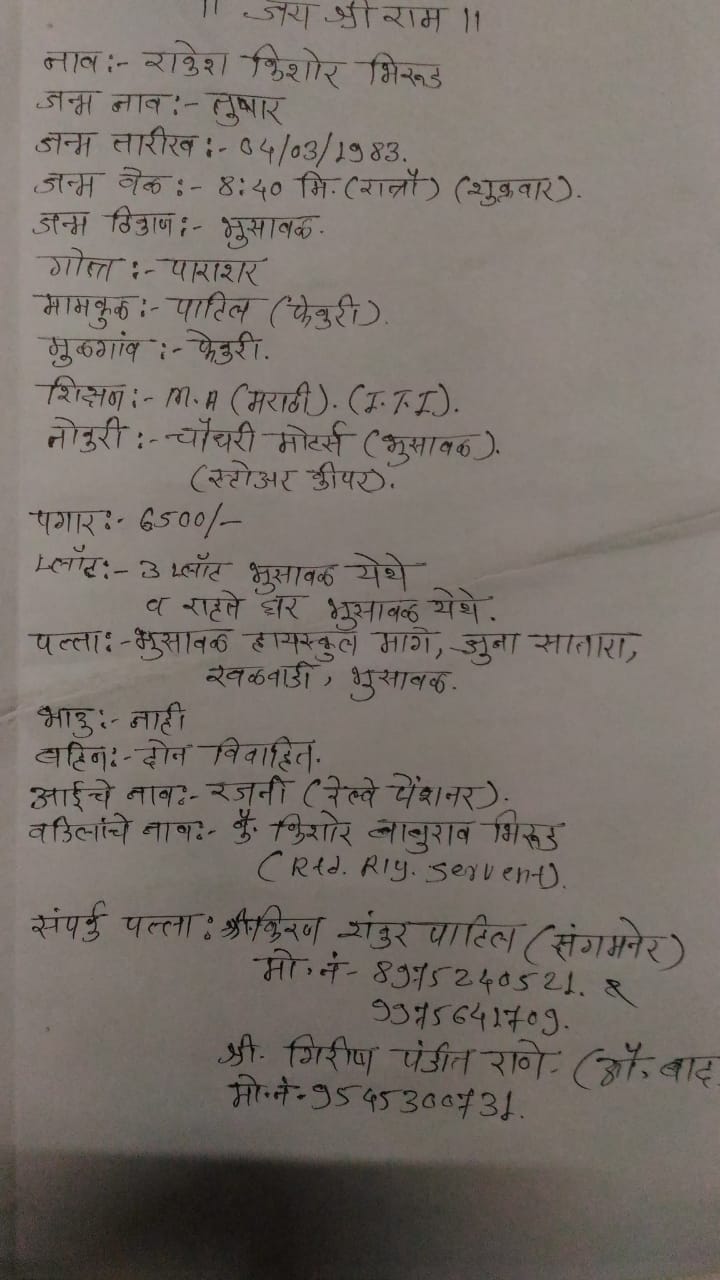 ॥ जय श्री राम ॥
नाव:- राकेश किशोर भिरूड
जन्म नाव:- तुषार
जन्म तारीख:- 04/03/1983.
जन्म वेळ:- 8:40 मि. (रात्री) (शुक्रवार).
जन्म ठिकाण:- भुसावळ.
गोत्र:- पाराशर
मामकुळ:- पाटिल (फेकरी).
मुळगांव:- फेकरी.
शिक्षन:- M.A (मराठी). (I.T.I).
नोकरी:- चौधरी मोटर्स (भुसावळ).
(स्टोअर कीपर).
पगार:- 6500/-
प्लॉट:- 3 प्लॉट भुसावळ येथे
व राहते घर भुसावळ येथे.
पत्ता:- भुसावळ हायस्कुल मागे, जुना सातारा,
खळवाडी, भुसावळ.
भाऊ:- नाही
बहिन:- दोन विवाहित.
आईचे नाव:- रजनी (रेल्वे पेंशनर).
वडिलांचे नाव:- कै. किशोर बाबुराव भिरूड
(Rtd. Rly. Servent).
संपर्क पत्ता: श्री. किरण शंकर पाटिल (संगमनेर)
मो. नं- 8975240521. &
9975641709.
श्री. गिरीष पंडीत राणे. (औ. बाद
मो. नं- 9545300731.